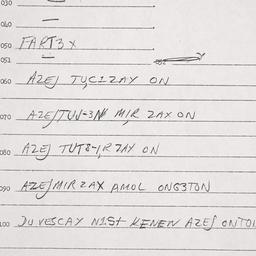 030
040
050 FART3X
051
060 AZEJ TUÇIZAY ON
070 AZEJTUJ-3N MIR ZAX ON
080 AZEJ TUT8-1,R ZAY ON
090 AZEJMIRZAX AMOL ONG3TON
100 DUVESCAY N1St KENEN AZEJ ONTOI